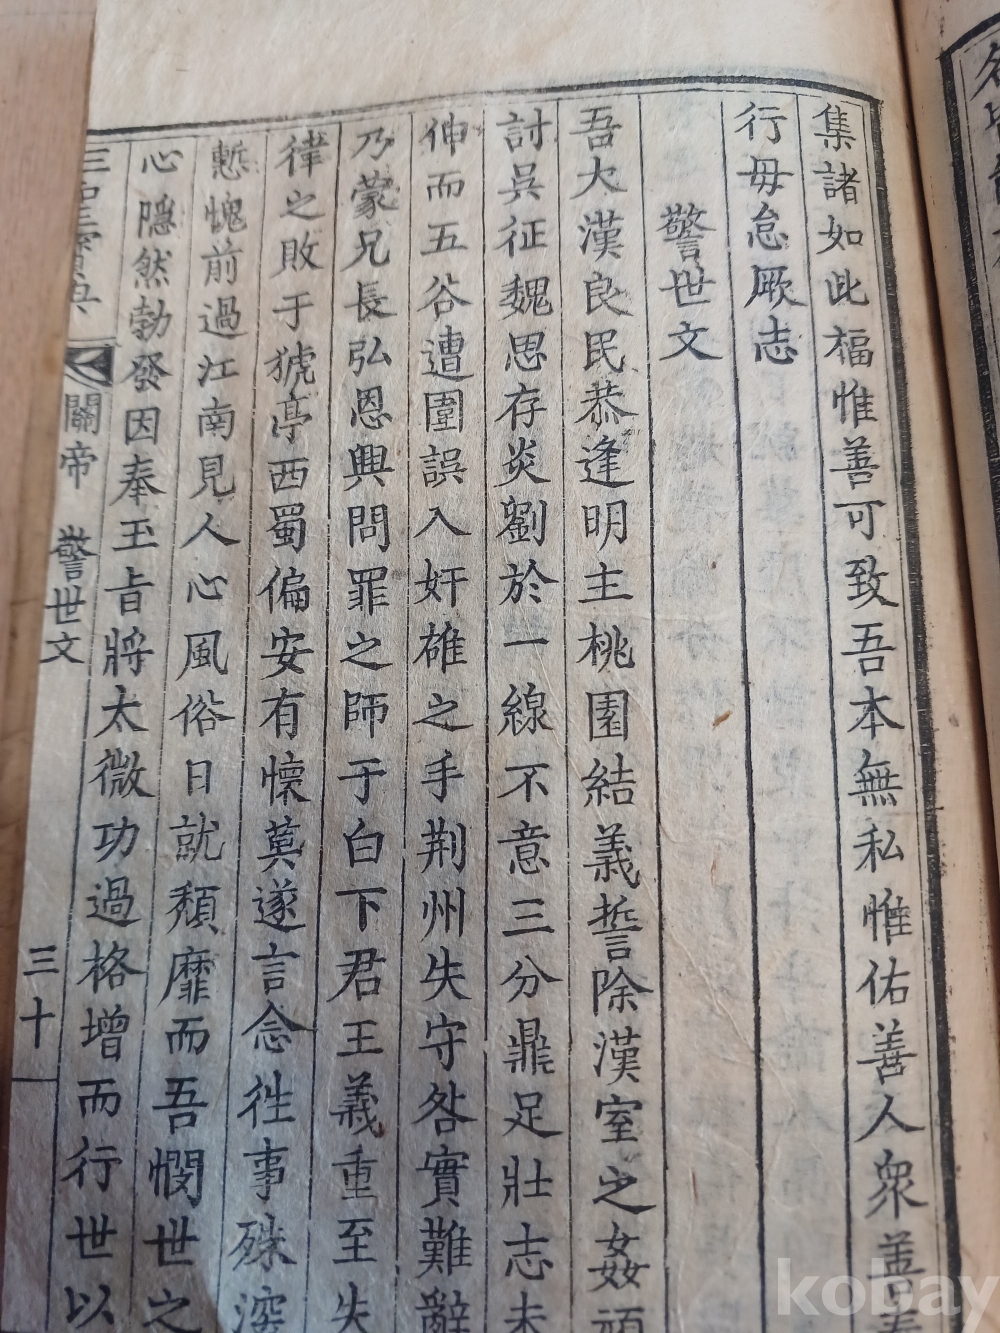 集諸如此福惟善可致吾本無私惟佑善人衆善
行毋怠厥志
警世文
吾大漢良民恭逢明主桃園結義誓除漢室之姦
討吳征魏思存炎劉於一線不意三分鼎足壯志未
伸而五谷遭圍誤入奸雄之手荆州失守咎實難辭
乃蒙兄長弘恩興問罪之師于白下君王義重至失
律之敗于猇亭西蜀偏安有懷莫遂言念徃事殊深
慙愧前過江南見人心風俗日就頽靡而吾憫世之
心隱然勃發因奉玉旨將太微功過格增而行世以
關帝 警世文
三十
kobay